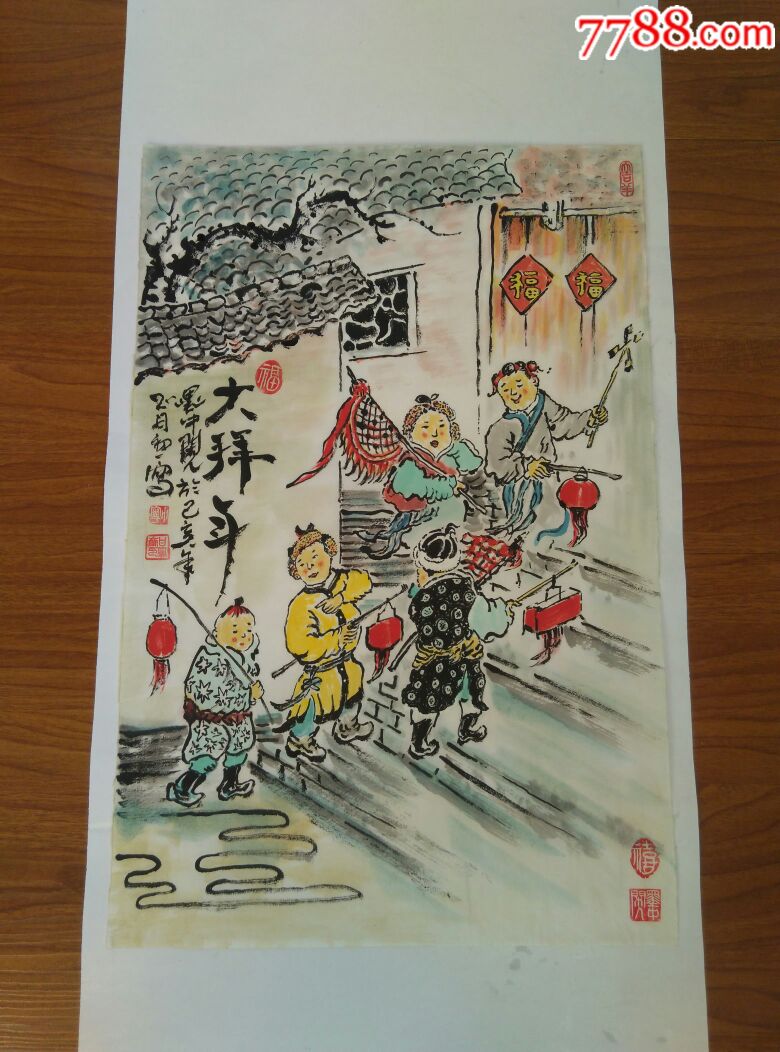 7788.com
福 福
福
大拜年
墨中闲人於己亥年
正月初 写
禧